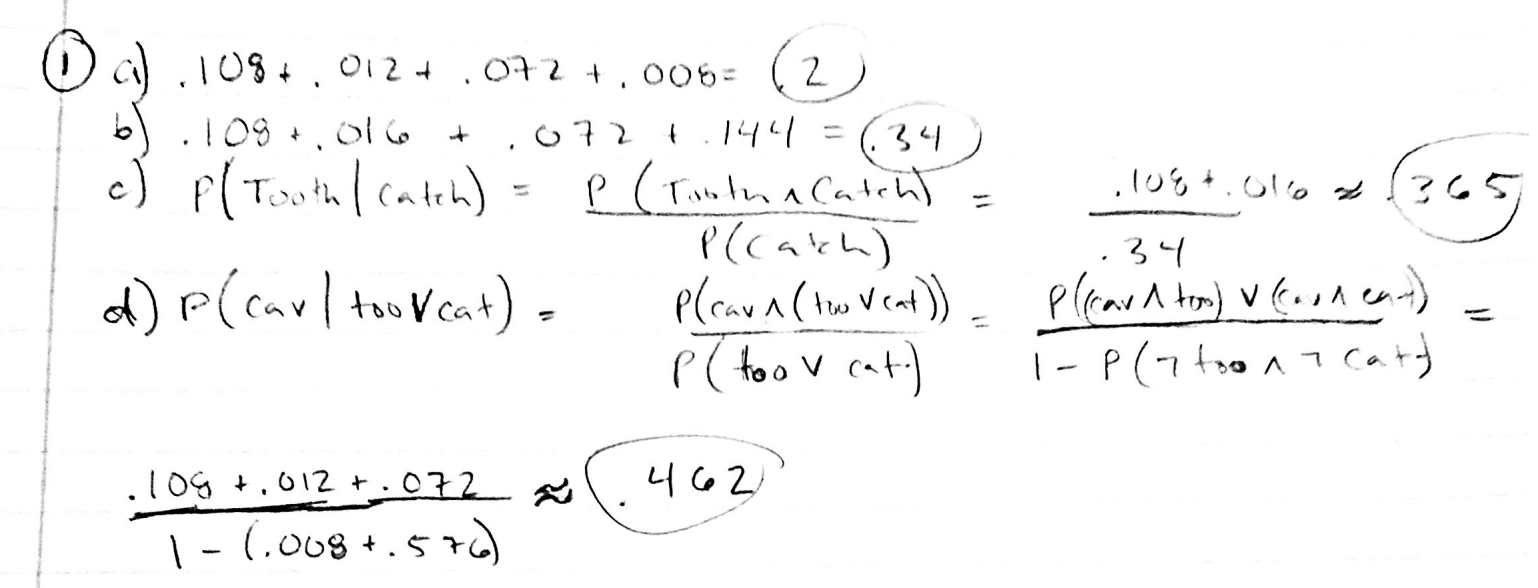 ① a) .108 + .012 + .072 + .008 = .2
b) .108 + .016 + .072 + .144 = .34
c) P(Tooth | Catch) = P(Tooth ∧ Catch) / P(Catch) = .108 + .016 / .34 ≈ .365
d) P(cav | too V cat) = P(cav ∧ (too V cat)) / P(too V cat) = P((cav ∧ too) V (cav ∧ cat)) / 1 - P(¬ too ∧ ¬ cat) =
.108 + .012 + .072 / 1 - (.008 + .576) ≈ .462